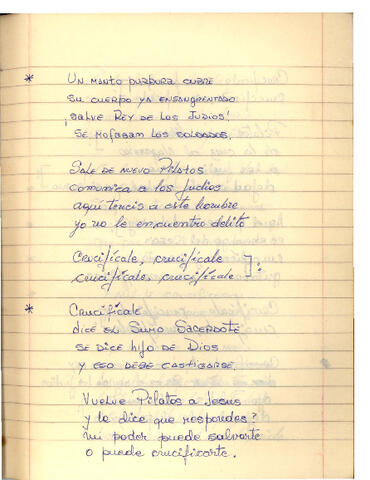 * Un manto purpura cubre
su cuerpo ya ensangrentado
¡Salve Rey de los Judios!
se mofaban los soldados.
Sale de nuevo Pilatos
comunica a los judios
aqui teneis a este hombre
yo no le encuentro delito
Crucifícale, crucifícale
crucifícale, crucifícale ]:
* Crucifícale
dice el Sumo Sacerdote
se dice hijo de Dios
y eso debe castigarse,
Vuelve Pilatos a Jesus
y le dice que respondes?
mi poder puede salvarte
o puede crucificarte.